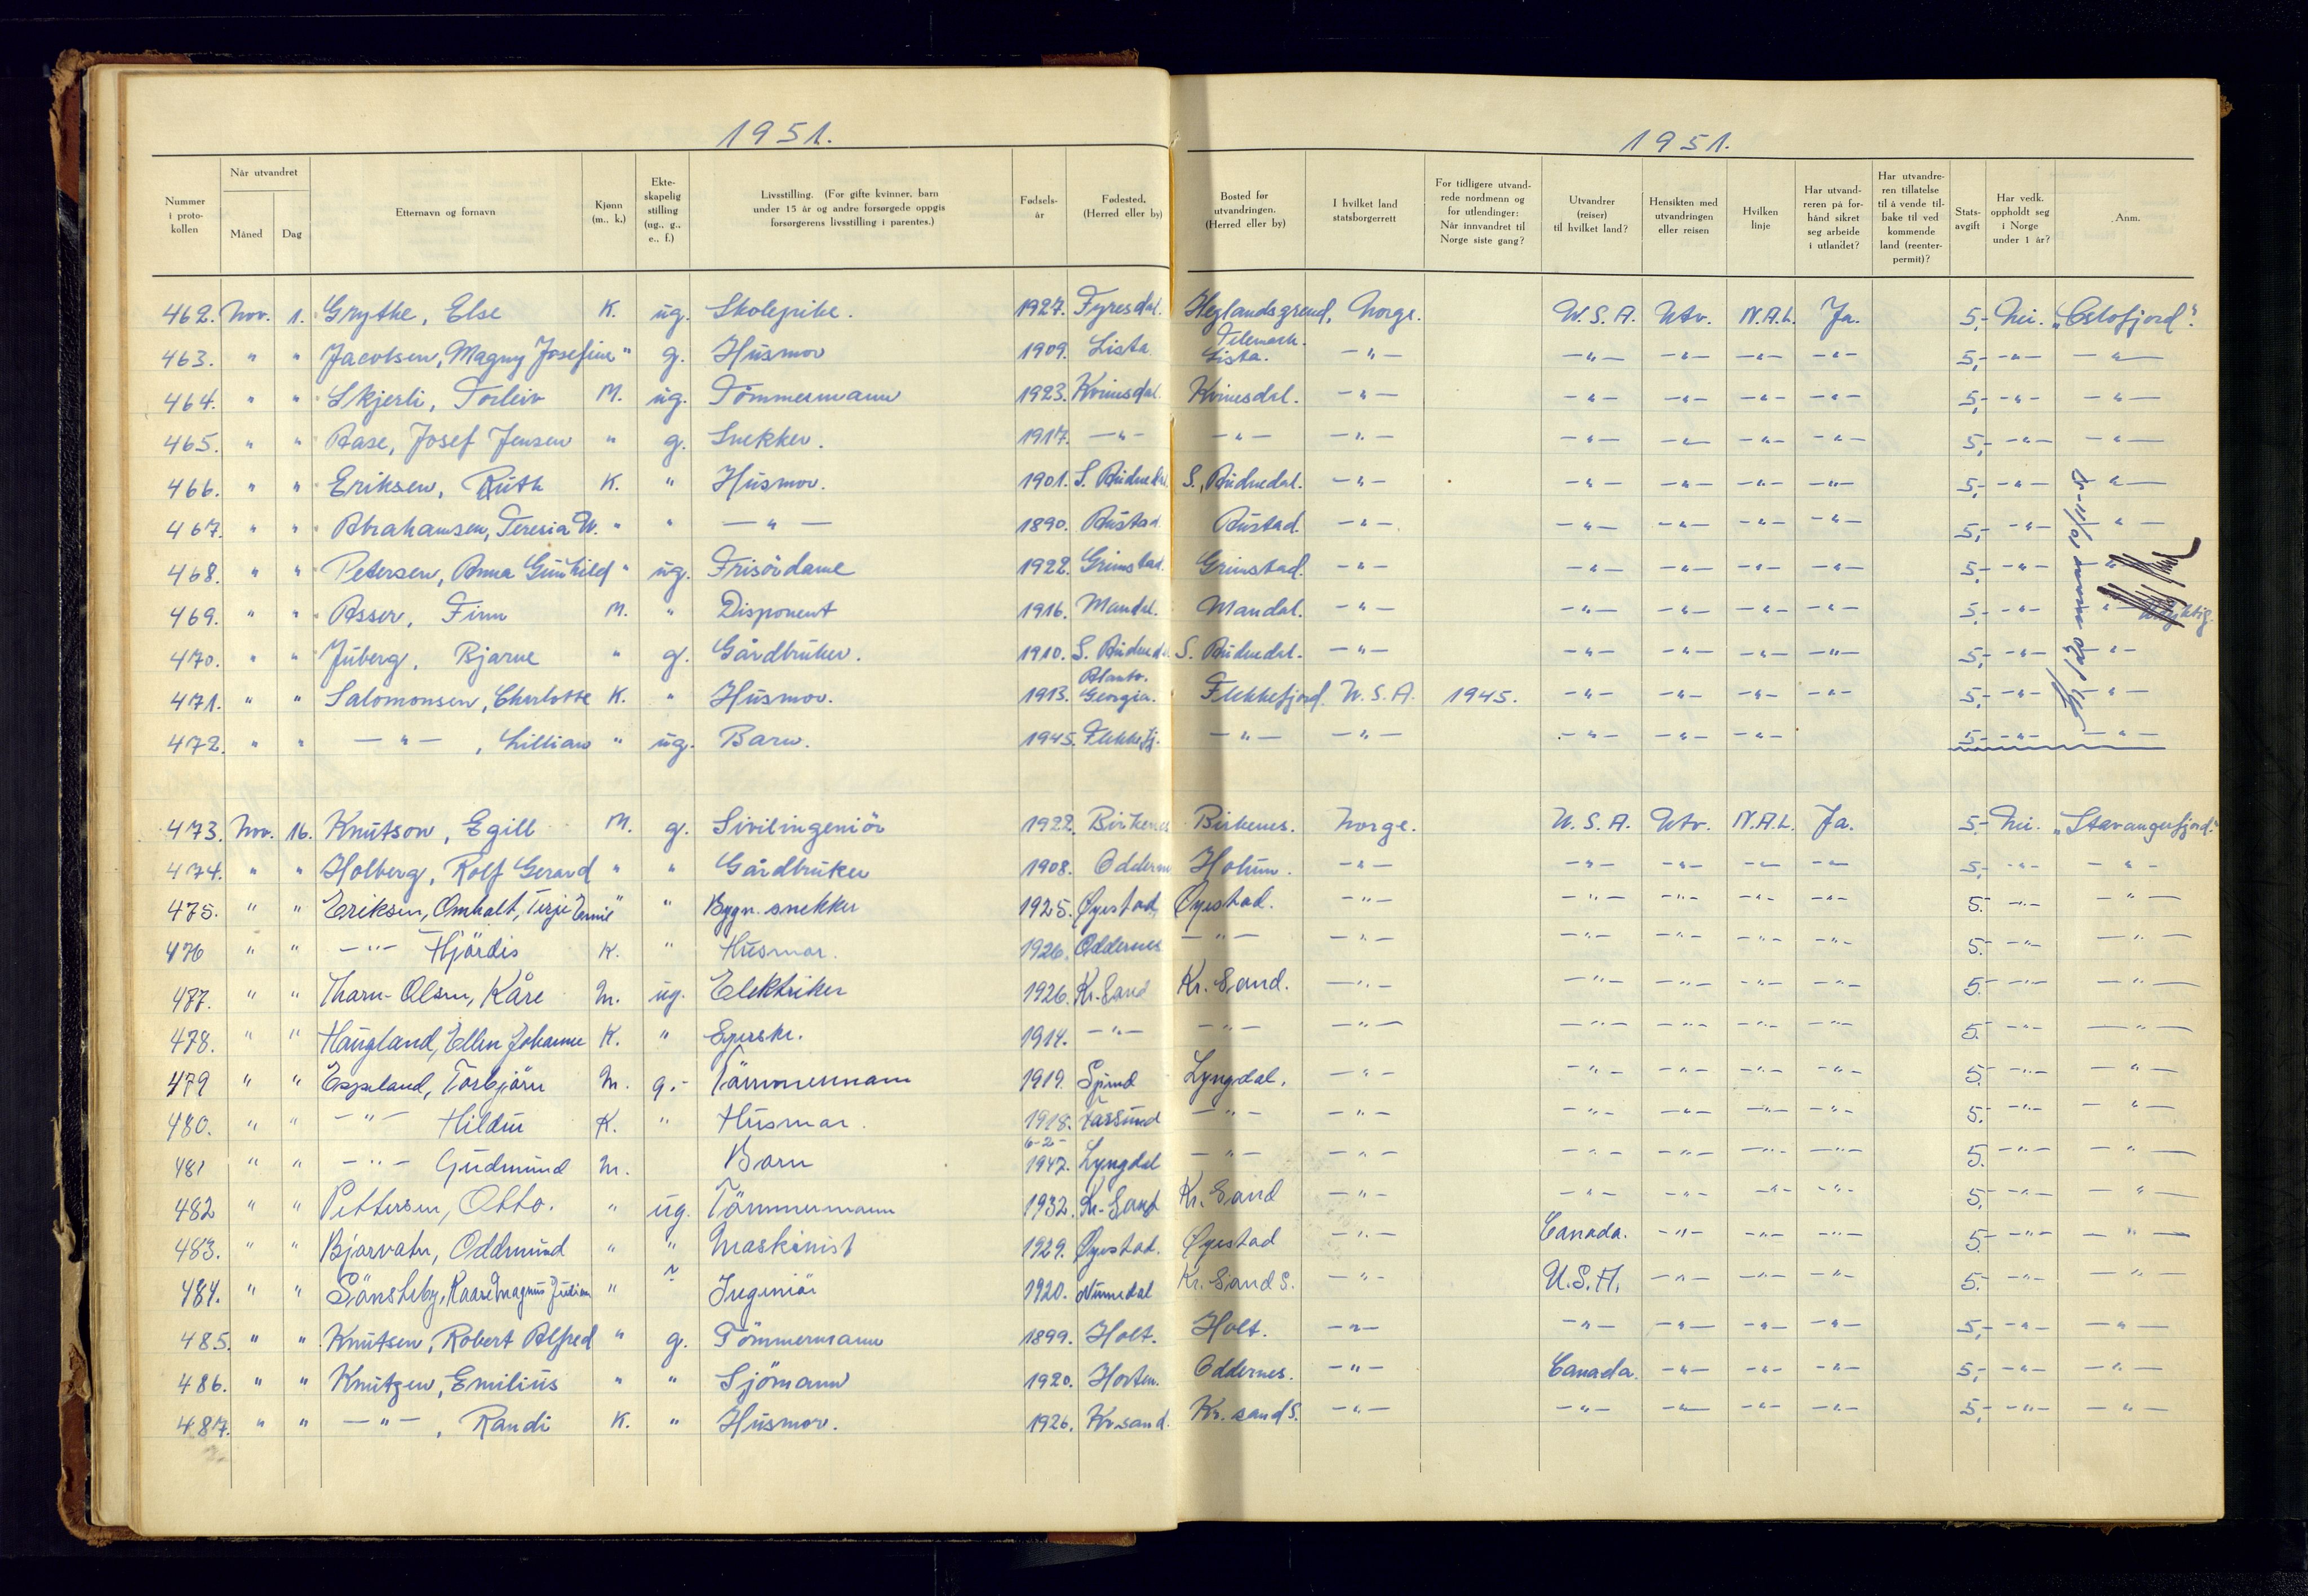 1951.
1951.
Nummer i proto-kollen
Når utvandret
Måned
Dag
Etternavn og fornavn
Kjønn (m., k.)
Ekte-skapelig stilling (ug., g., e., f.)
Livsstilling. (For gifte kvinner, barn under 15 år og andre forsørgede oppgis forsørgerens livsstilling i parentes.)
Fødsels-år
Fødested. (Herred eller by)
Bosted før utvandringen. (Herred eller by)
I hvilket land statsborgerrett
For tidligere utvand-rede nordmenn og for utlendinger: Når innvandret til Norge siste gang?
Utvandrer (reiser) til hvilket land?
Hensikten med utvandringen eller reisen
Hvilken linje
Har utvand-reren på for-hånd sikret seg arbeide i utlandet?
Har utvandre-ren tillatelse til å vende til-bake til ved kommende land (reenter-permit)?
Stats-avgift
Har vedk. oppholdt seg i Norge under 1 år?
Anm.
462. Nov. 1. Grythe, Else K. ug. Skolepike. 1927. Fyresdal. Heglandsgrend, Telemark. Norge. U.S.A. Utv. N.A.L. Ja. 5,- Nei. "Oslofjord".
463. " " Jacobsen, Magny Josefine " g. Husmor 1909. Lista Lista. -"- -"- -"- -"- -"- 5,- -"- -"-
464. " " Skjerli, Torleiv M. ug. Tömmermann 1923. Kvinesdal. Kvinesdal. -"- -"- -"- -"- -"- 5,- -"- -"-
465. " " Aase, Josef Jensen " g. Snekker. 1917. -"- -"- -"- -"- -"- -"- -"- 5,- -"- -"-
466. " " Eriksen, Ruth K. " Husmor. 1901. S. Audnedal. S. Audnedal. -"- -"- -"- -"- -"- 5,- -"- -"-
467. " " Abrahamsen, Teresia W. " " -"- 1890. Austad Austad. -"- -"- -"- -"- -"- 5,- -"- -"-
468. " " Petersen, Anna Gunhild " ug. Frisördame 1922. Grimstad. Grimstad. -"- -"- -"- -"- -"- 5,- -"- -"-
469. " " Asser, Finn M. " Disponent 1916. Mandal. Mandal. -"- -"- -"- -"- -"- 5,- -"- -"-
470. " " Juberg, Bjarne " g. Gårdbruker. 1910. S. Audnedal. S. Audnedal. -"- -"- -"- -"- -"- 5,- -"- -"-
471. " " Salomonsen, Charlotte K. " Husmor. 1913. Georgia. Flekkefjord. U.S.A. 1945. -"- -"- -"- -"- 5,- -"- -"-
472. " " -"-, Lillian " ug. Barn. 1945. Flekkefj. -"- -"- -"- -"- -"- 5,- -"- -"-
473. Nov. 16. Knutson, Egill M. g. Sivilingeniör 1922. Birkenes Birkenes. Norge. U.S.A. Utv. N.A.L. Ja. 5,- Nei. "Stavangerfjord."
474. " " Holberg, Rolf Gerard " " Gårdbruker 1908. Oddernes Holum. -"- -"- -"- -"- -"- 5,- -"- -"-
475. " " Eriksen, Omholt, Terje Emil " " Bygn. snekker 1925. Øyestad, Øyestad. -"- -"- -"- -"- -"- 5.- -"- -"-
476 " " -"- Hjördis K. " Husmor. 1926. Oddernes -"- -"- -"- -"- -"- -"- 5.- -"- -"-
477. " " Tharn-Olsen, Kåre M. ug. Elektriker 1926. Kr. Sand Kr. Sand. -"- -"- -"- -"- -"- 5.- -"- -"-
478. " " Haugland, Ellen Johanne K. " 1914. -"- -"- -"- -"- -"- -"- -"- 5.- -"- -"-
479 " " Espeland, Torbjörn M. g.- Tömmermann 1919. Spind Lyngdal. -"- -"- -"- -"- -"- 5.- -"- -"-
480. " " -"- Hildur K. " Husmor. 1918. Farsund -"- -"- -"- -"- -"- -"- 5.- -"- -"-
481 " " -"- Gudmund M. Barn 6-2- 1947. Lyngdal -"- -"- -"- -"- -"- -"- 5.- -"- -"-
482 " " Pettersen, Otto. " ug. Tömmermann 1932. Kr. Sand Kr. Sand -"- -"- -"- -"- -"- 5.- -"- -"-
483. " " Bjorvatn, Oddmund " " Maskinist 1929. Øyestad. Øyestad -"- Canada. -"- -"- -"- 5.- -"- -"-
484. " " Sønsteby, Kaare Magnus Julian " " Ingeniör 1920. Kr. Sand S. -"- U.S.A. -"- -"- -"- 5.- -"- -"-
485. " " Knutsen, Robert Alfred " g. Tömmermann 1899. Holt. Holt. -"- -"- -"- -"- -"- 5,- -"- -"-
486. " " Knutzen, Emilius " " Sjömann 1920. Horten. Oddernes. -"- Canada. -"- -"- -"- 5,- -"- -"-
487. " " -"-, Randi K. " Husmor. 1926. Kr.sand. Kr.sand S. -"- -"- -"- -"- -"- 5,- -"- -"-